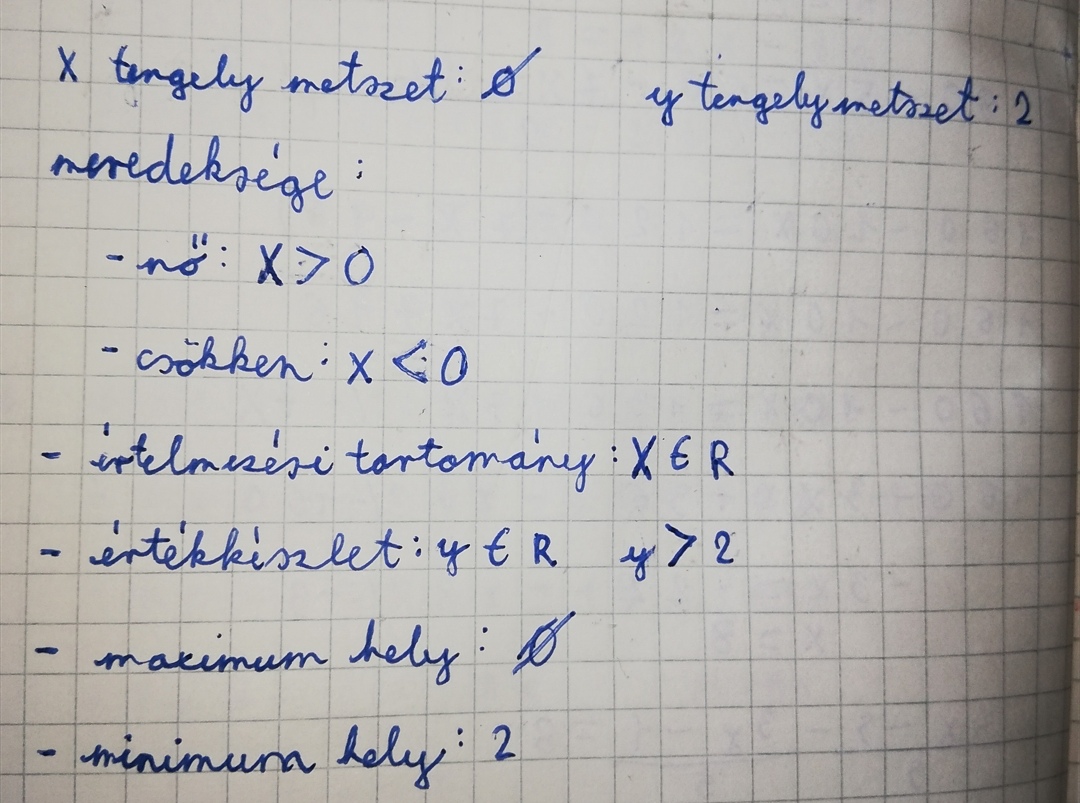 x tengely metszet: Ø y tengelymetszet: 2
meredeksége:
- nő: x > 0
- csökken: x < 0
- értelmezési tartomány: X € R
- értékkészlet: y € R y > 2
- maximum hely: Ø
- minimum hely: 2